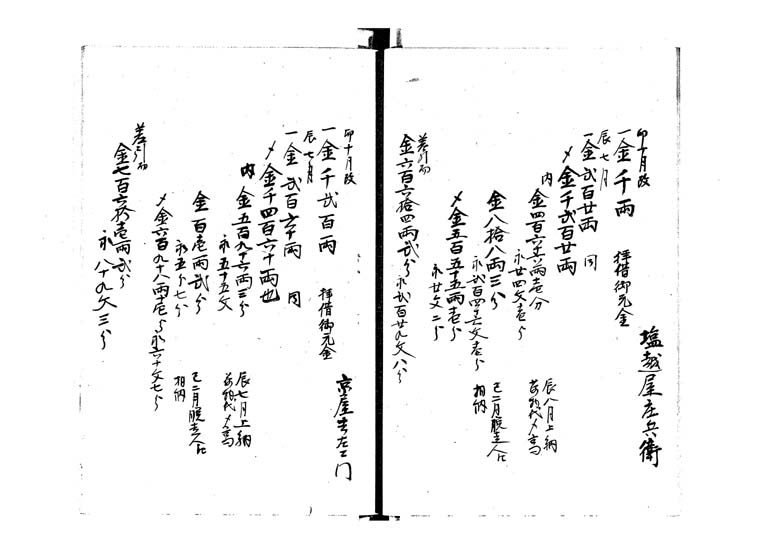 塩越屋庄兵衛
卯十月改
一金千両 拝借御元金
辰七月
一金弐百廿両 同
〆金千弐百廿両
内
金四百六十六両壱分
永廿四文壱分
辰八月上納
荷物代〆高
金八拾八両三分
永弐百四十六文壱分
巳二月脱走人ニ
相納
〆金五百五十五両壱分
永廿文二分
差引而
金六百六拾四両弐分 永弐百廿九文八分
京屋吉左エ門
卯十月改
一金千弐百両 拝借御元金
辰七月
一金弐百六十両 同
〆金千四百六十両也
内
金五百九十六両三分
永五十五文
辰七月上納
荷物代〆高
金百壱両弐分
永五文七分
巳二月脱走人ニ
相納
〆金六百九十八両壱分 永六十文七分
差引而
金七百六拾壱両弐分
永八十九文三分